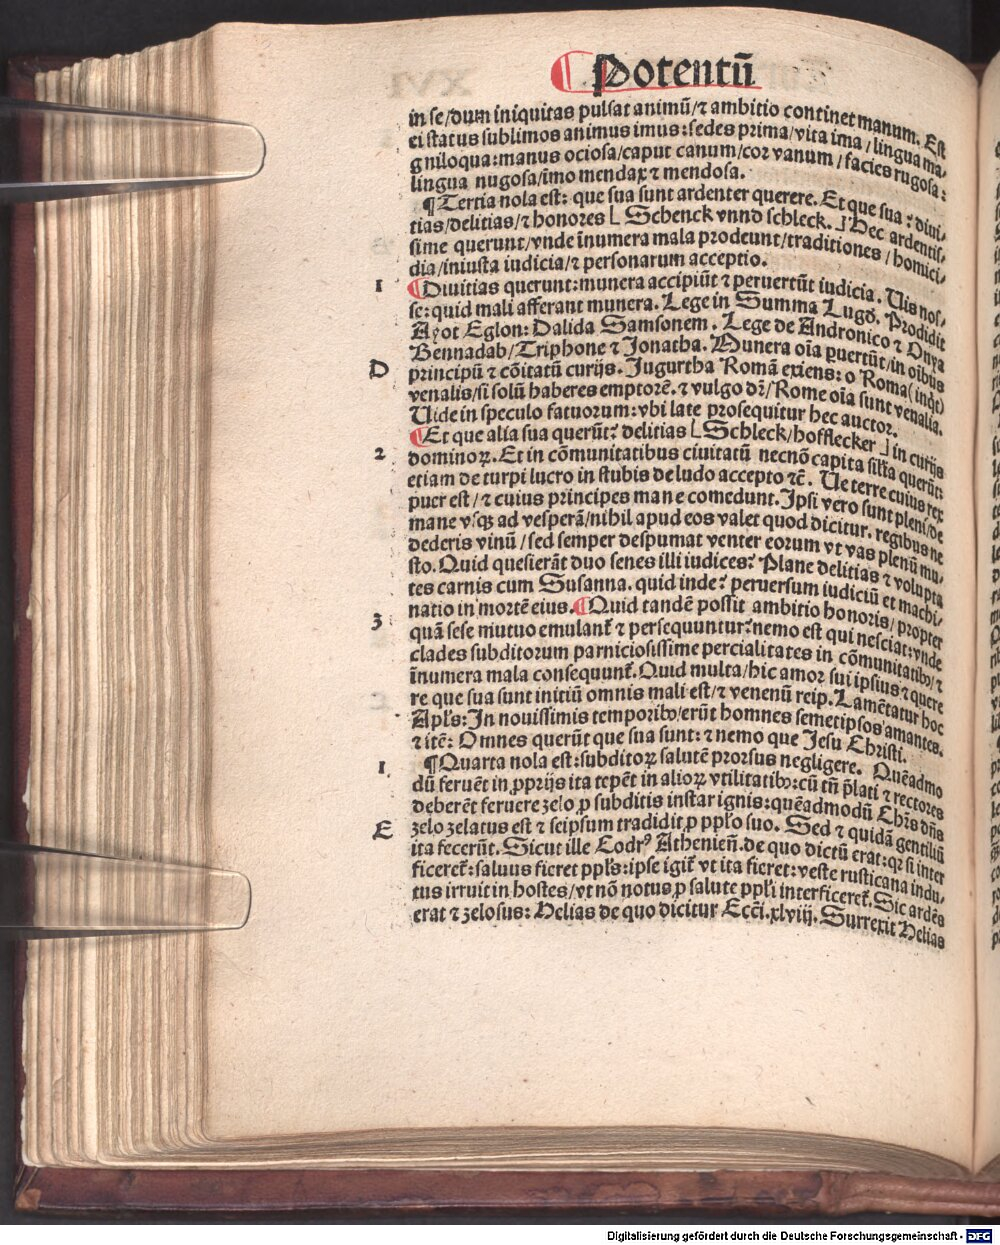 ¶ Potentū
in se/dum iniquitas pulsat animū/⁊ ambitio continet manum. Est
ei status sublimos animus imus: sedes prima/vita ima/lingua ma⸗
gniloqua: manus ociosa/caput canum/cor vanum/facies rugosa:
lingua nugosa/imo mendax ⁊ mendosa.
¶ Tertia nola est: que sua sunt ardenter querere. Et que sua? diui⸗
tias/delitias/⁊ honores [Schenck vnnd schleck.] Hec ardentis⸗
sime querunt/vnde īnumera mala prodeunt/traditiones/homici⸗
dia/iniusta iudicia/⁊ personarum acceptio.
1 ¶ Diuitias querunt: munera accipiūt ⁊ peruertūt iudicia. Uis nos⸗
se: quid mali afferant munera. Lege in Summa Lugd. Prodidit
Ayot Eglon: Dalida Samsonem. Lege de Andronico ⁊ Onya
Bennadab/Triphone ⁊ Jonatha. Munera oīa puertūt/in oībus
D principū ⁊ cōitatū curijs. Jugurtha Romā exiens: o Roma (inqt)
venalis/si solū haberes emptorē. ⁊ vulgo dr̄/Rome oīa sunt venalia.
Uide in speculo fatuorum: vbi late prosequitur hec auctor.
¶ Et que alia sua querūt? delitias [Schleck/hofflecker] in curijs
2 dominoꝝ. Et in cōmunitatibus ciuitatū necnō capita silr̄a querūt:
etiam de turpi lucro in stubis de ludo accepto ⁊c̄. Ue terre cuius rex
puer est/⁊ cuius principes mane comedunt. Ipsi vero sunt pleni/de
mane vsqꝫ ad vesperā/nihil apud eos valet quod dicitur. regibus ne
dederis vinū/sed semper despumat venter eorum vt vas plenū mu⸗
sto. Quid quesierāt duo senes illi iudices? Plane delitias ⁊ volupta
tes carnis cum Susanna. quid inde? peruersum iudiciū et machi⸗
natio in mortē eius. ¶ Quid tandē possit ambitio honoris/propter
3 quā sese mutuo emulant̄ ⁊ persequuntur? nemo est qui nesciat: vnde
clades subditorum parniciosissime percialitates in cōmunitatibꝰ/⁊
īnumera mala consequunt̄. Quid multa/hic amor sui ipsius ⁊ quere
re que sua sunt initiū omnis mali est/⁊ venenū reip. Lamētatur hoc
Apl̄s: In nouissimis temporibꝰ/erūt homnes semetipsos amantes.
⁊ itē: Omnes querūt que sua sunt: ⁊ nemo que Jesu Christi.
1. ¶ Quarta nola est: subditoꝝ salutē prorsus negligere. Quēadmo
dū feruēt in ꝓprijs ita tepēt in alioꝝ vtilitatibꝰ: cū tn̄ p̄lati ⁊ rectores
deberēt feruere zelo ꝓ subditis instar ignis: quēadmodū Chr̄s dn̄s
E zelo zelatus est ⁊ seipsum tradidit ꝓ ppl̄o suo. Sed ⁊ quidā gentiliū
ita fecerūt. Sicut ille Codrꝰ Athenien̄. de quo dictū erat: qꝛ si inter
ficeret̄: saluus fieret ppl̄s: ipse igit̄ vt ita fieret: veste rusticana indu⸗
tus irruit in hostes/vt nō notus ꝓ salute ppl̄i interficeret̄. Sic ardēs
erat ⁊ zelosus: Helias de quo dicitur Ecci. xlviij. Surrexit Helias
Digitalisierung gefördert durch die Deutsche Forschungsgemeinschaft - DFG